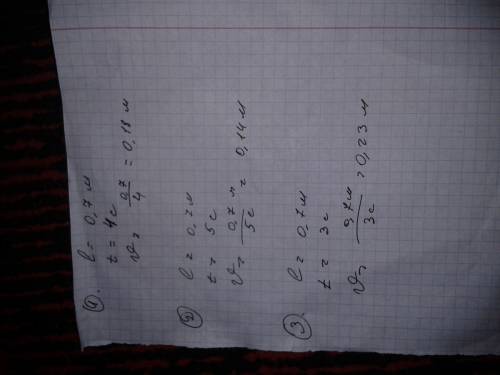 1.
l = 0,7 м
t = 4с
v = 0,7/4 = 0,18 м
2
l = 0,7м
t = 5с
v = 0,7м/5с = 0,14 м
3.
l = 0,7м
t = 3с
v = 0,7м/3с = 0,23 м